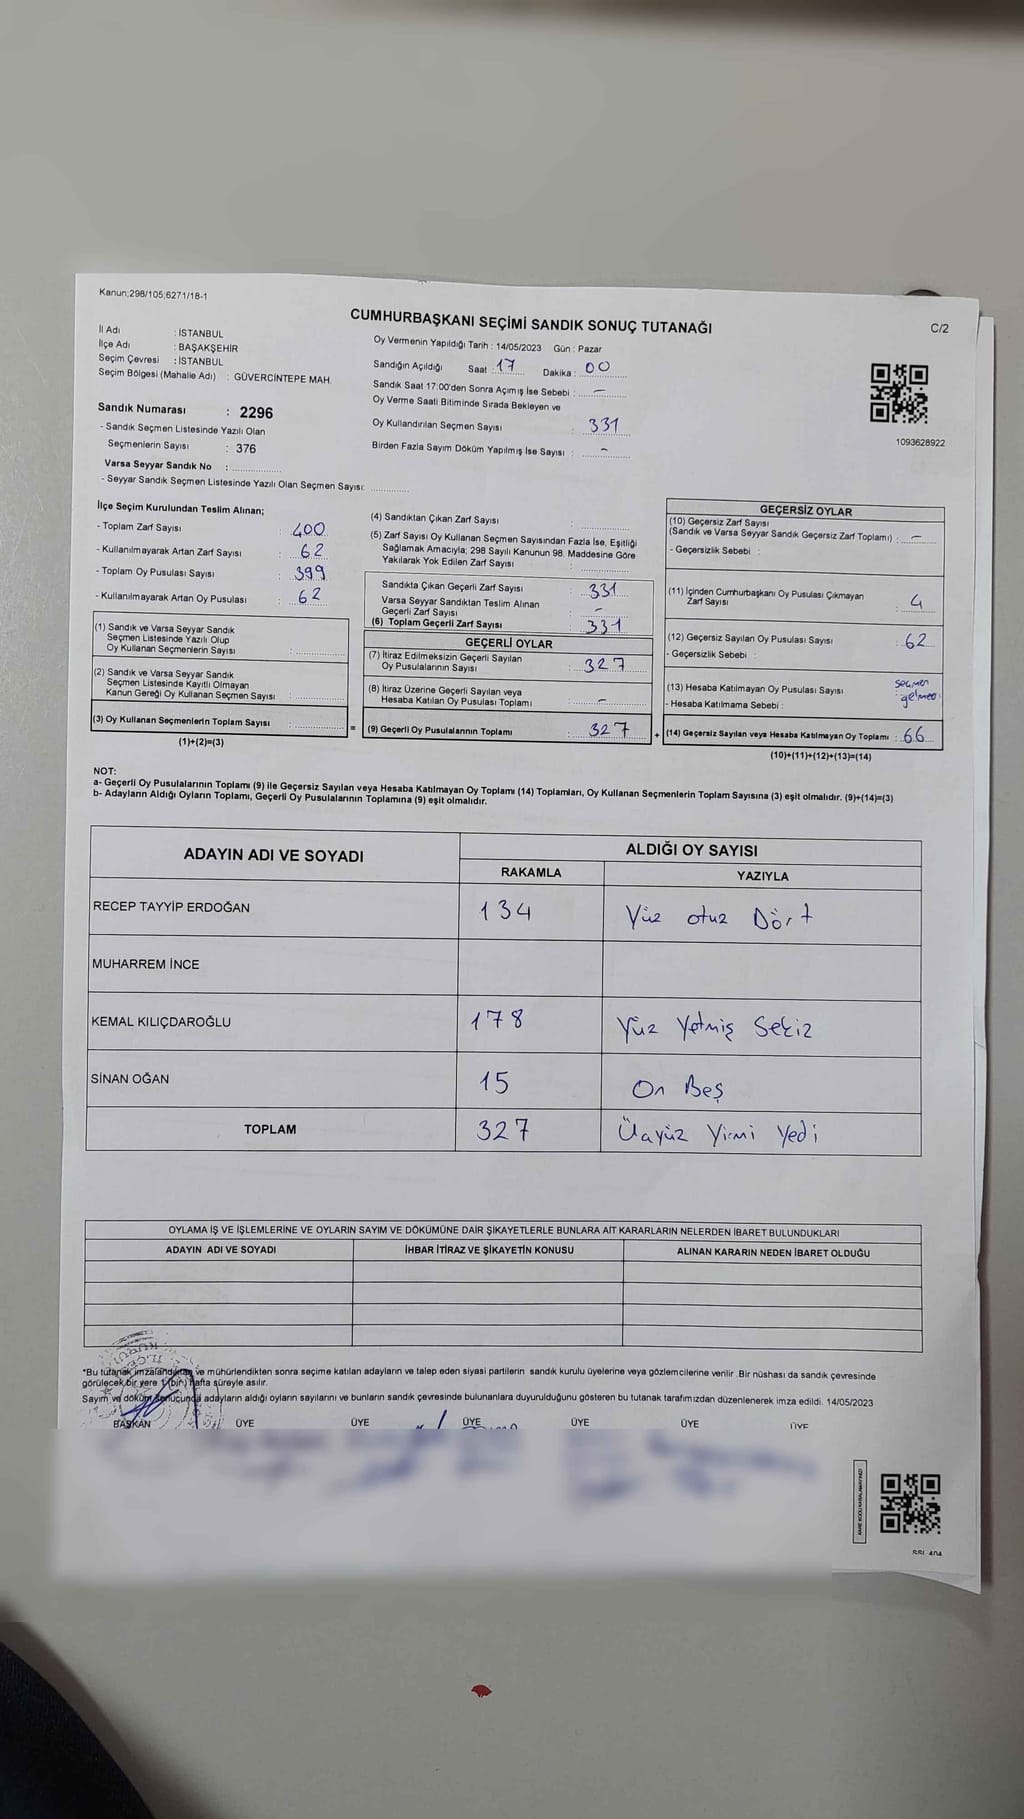 Kanun;298/105;6271/18-1
CUMHURBAŞKANI SEÇİMİ SANDIK SONUÇ TUTANAĞI
C/2
İl Adı : İSTANBUL
İlçe Adı : BAŞAKŞEHİR
Seçim Çevresi : İSTANBUL
Seçim Bölgesi (Mahalle Adı) : GÜVERCİNTEPE MAH.
Sandık Numarası : 2296
- Sandık Seçmen Listesinde Yazılı Olan
Seçmenlerin Sayısı : 376
Varsa Seyyar Sandık No :
- Seyyar Sandık Seçmen Listesinde Yazılı Olan Seçmen Sayısı:
Oy Vermenin Yapıldığı Tarih : 14/05/2023 Gün : Pazar
Sandığın Açıldığı Saat : 17 Dakika : 00
Sandık Saat 17:00'den Sonra Açımış İse Sebebi : -
Oy Verme Saati Bitiminde Sırada Bekleyen ve
Oy Kullandırılan Seçmen Sayısı : 331
Birden Fazla Sayım Döküm Yapılmış İse Sayısı : -
1093628922
İlçe Seçim Kurulundan Teslim Alınan;
- Toplam Zarf Sayısı : 400
- Kullanılmayarak Artan Zarf Sayısı : 62
- Toplam Oy Pusulası Sayısı : 399
- Kullanılmayarak Artan Oy Pusulası : 62
(1) Sandık ve Varsa Seyyar Sandık
Seçmen Listesinde Yazılı Olup
Oy Kullanan Seçmenlerin Sayısı :
(2) Sandık ve Varsa Seyyar Sandık
Seçmen Listesinde Kayıtlı Olmayan
Kanun Gereği Oy Kullanan Seçmen Sayısı :
(3) Oy Kullanan Seçmenlerin Toplam Sayısı :
(1)+(2)=(3)
(4) Sandıktan Çıkan Zarf Sayısı :
(5) Zarf Sayısı Oy Kullanan Seçmen Sayısından Fazla İse, Eşitliği
Sağlamak Amacıyla; 298 Sayılı Kanunun 98. Maddesine Göre
Yakılarak Yok Edilen Zarf Sayısı :
Sandıkta Çıkan Geçerli Zarf Sayısı : 331
Varsa Seyyar Sandıktan Teslim Alınan
Geçerli Zarf Sayısı : -
(6) Toplam Geçerli Zarf Sayısı : 331
GEÇERLİ OYLAR
(7) İtiraz Edilmeksizin Geçerli Sayılan
Oy Pusulalarının Sayısı : 327
(8) İtiraz Üzerine Geçerli Sayılan veya
Hesaba Katılan Oy Pusulası Toplamı : -
= (9) Geçerli Oy Pusulalarının Toplamı : 327 +
GEÇERSİZ OYLAR
(10) Geçersiz Zarf Sayısı
(Sandık ve Varsa Seyyar Sandık Geçersiz Zarf Toplamı) : -
- Geçersizlik Sebebi :
(11) İçinden Cumhurbaşkanı Oy Pusulası Çıkmayan
Zarf Sayısı : 4
(12) Geçersiz Sayılan Oy Pusulası Sayısı : 62
- Geçersizlik Sebebi :
(13) Hesaba Katılmayan Oy Pusulası Sayısı : seçmen
- Hesaba Katılmama Sebebi :
(14) Geçersiz Sayılan veya Hesaba Katılmayan Oy Toplamı : 66
(10)+(11)+(12)+(13)=(14)
NOT:
a- Geçerli Oy Pusulalarının Toplamı (9) ile Geçersiz Sayılan veya Hesaba Katılmayan Oy Toplamı (14) Toplamları, Oy Kullanan Seçmenlerin Toplam Sayısına (3) eşit olmalıdır. (9)+(14)=(3)
b- Adayların Aldığı Oyların Toplamı, Geçerli Oy Pusulalarının Toplamına (9) eşit olmalıdır.
ADAYIN ADI VE SOYADI ALDIĞI OY SAYISI
RAKAMLA YAZIYLA
RECEP TAYYİP ERDOĞAN 134 Yüz otuz Dört
MUHARREM İNCE
KEMAL KILIÇDAROĞLU 178 Yüz Yetmiş Sekiz
SİNAN OĞAN 15 On Beş
TOPLAM 327 Üçyüz Yirmi Yedi
OYLAMA İŞ VE İŞLEMLERİNE VE OYLARIN SAYIM VE DÖKÜMÜNE DAİR ŞİKAYETLERLE BUNLARA AİT KARARLARIN NELERDEN İBARET BULUNDUKLARI
ADAYIN ADI VE SOYADI İHBAR İTİRAZ VE ŞİKAYETİN KONUSU ALINAN KARARIN NEDEN İBARET OLDUĞU
*Bu tutanak imzalandıktan ve mühürlendikten sonra seçime katılan adayların ve talep eden siyasi partilerin sandık kurulu üyelerine veya gözlemcilerine verilir. Bir nüshası da sandık çevresinde
görülecek bir yere 1 (bir) hafta süreyle asılır.
Sayım ve döküm sonucunda adayların aldığı oyların sayılarını ve bunların sandık çevresinde bulunanlara duyurulduğunu gösteren bu tutanak tarafımızdan düzenlenerek imza edildi. 14/05/2023
BAŞKAN ÜYE ÜYE ÜYE ÜYE ÜYE ÜYE
KARE KODU KARALAMAYINIZ!